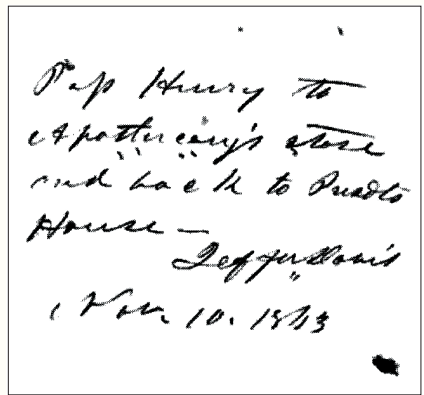 Pass Henry to
Apothecary's store
and back to Presdts
House —
Jeffer Davis
Nov. 10. 1863